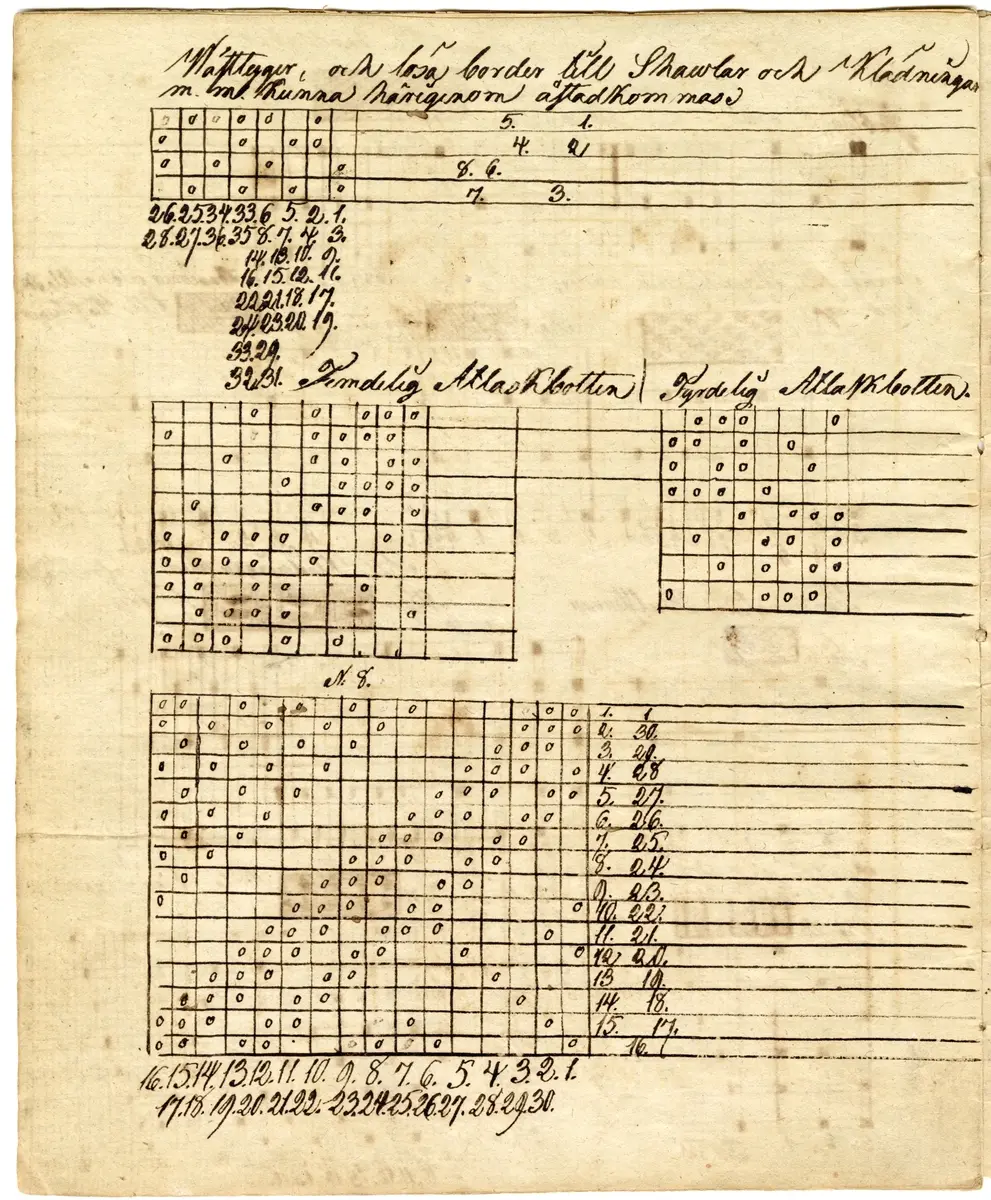 och lösa border till Shawlar och Klädningar
m. m. kunna härigenom åstadkommas
5. 1.
4. 2
8. 6.
7. 3.
26. 25. 34. 33. 6 5. 2. 1.
28. 27. 36. 35 8. 7. 4. 3.
14. 13. 10. 9.
16. 15. 12. 11.
22. 21. 18. 17.
24. 23. 20. 19.
33. 29.
32. 31.
Femdelig Atlaskbotten
Fyrdelig Atlaskbotten.
N. 8.
1. 1
2. 30.
3. 29.
4. 28
5. 27.
6. 26.
7. 25.
8. 24
9. 23.
10. 22.
11. 21.
12 20.
13 19.
14. 18.
15. 17.
16.
16. 15. 14. 13. 12. 11. 10. 9. 8. 7. 6. 5. 4. 3. 2. 1.
17. 18. 19. 20. 21. 22. 23. 24. 25. 26. 27. 28. 29. 30.